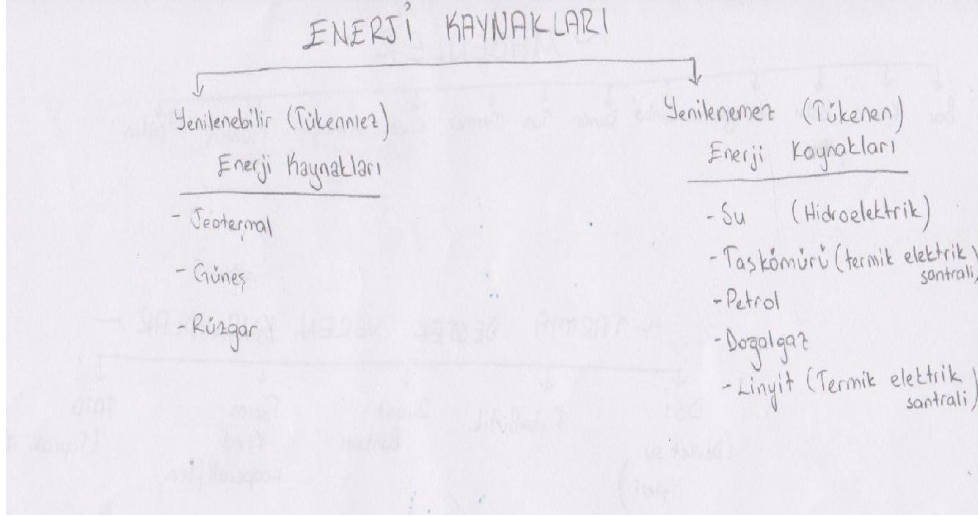 ENERJİ KAYNAKLARI
Yenilenebilir (Tükenmez)
Enerji Kaynakları
- Jeotermal
- Güneş
- Rüzgar
Yenilenemez (Tükenen)
Enerji Kaynakları
- Su (Hidroelektrik)
- Taşkömürü (termik elektrik
santrali)
- Petrol
- Dogalgaz
- Linyit (Termik elektrik
santrali)